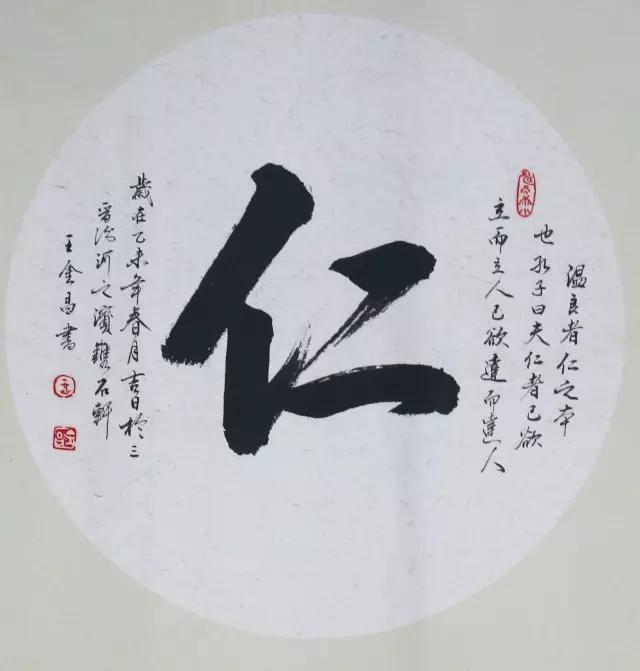 温良者仁之本
也孔子曰夫仁者己欲
立而立人己欲達而達人
仁
歲在乙未年春月吉日於三
晋汾河之濱石軒
王金昌書